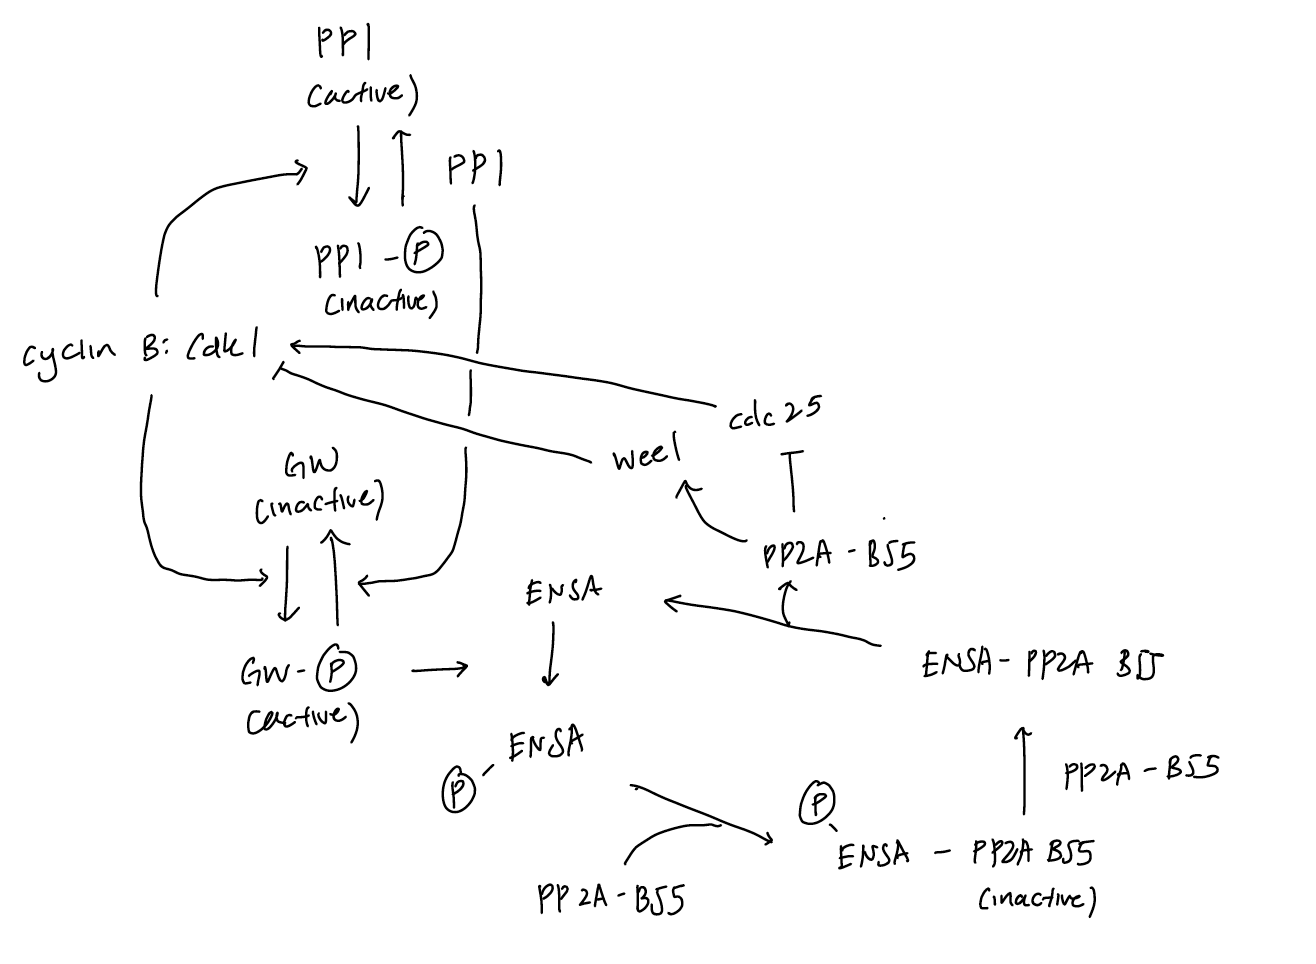 PP1
(active)
PP1
PP1 - P
(inactive)
cyclin B: Cdk1
cdc25
wee1
GW
(inactive)
PP2A - B55
ENSA
GW - P
(active)
ENSA - PP2A B55
ENSA
P
PP2A - B55
P
ENSA - PP2A B55
(inactive)
PP2A - B55